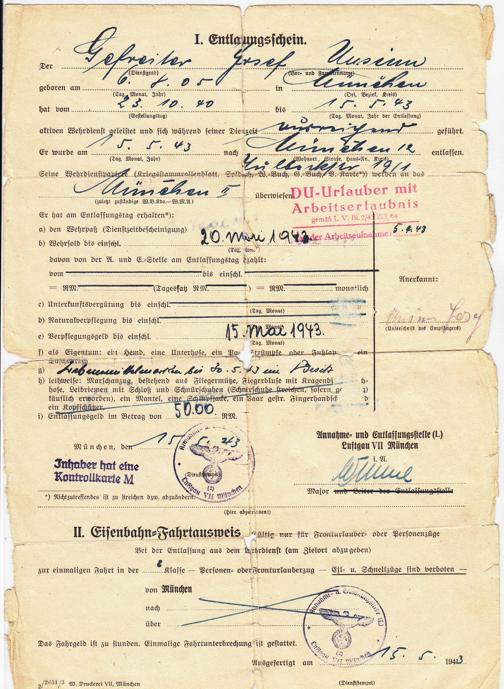 I. Entlassungsschein.
Der Gefreiter Josef
(Dienstgrad) (Vor- und Familienname)
geboren am 6. 8. 05 in München
(Tag, Monat, Jahr) (Ort, Bezirk, Kreis)
hat vom 23. 10. 40 bis 15. 5. 43
(Gestellungstag) (Tag, Monat, Jahr der Entlassung)
aktiven Wehrdienst geleistet und sich während seiner Dienstzeit geführt.
Er wurde am 15. 5. 43 nach München 12 entlassen.
(Tag, Monat, Jahr) (Wohnort, Straße, Haus-Nr., Kreis)
19/1
Seine Wehrdienstpapiere (Kriegsstammrollenblatt, Soldbuch, W. Buch, G. Buch, V. Karte*) werden an das
München II überwiesen.
(zuletzt zuständige W.B.Kdo. - W.M.A.)
DU-Urlauber mit
Arbeitserlaubnis
gemäß L. V. Bl.
der Arbeitsaufnahme: 5.4.43
Er hat am Entlassungstag erhalten*):
a) den Wehrpaß (Dienstzeitbescheinigung)
b) Wehrsold bis einschl. 20. Mai 1943.
(Tag, Monat)
davon von der A. und E.-Stelle am Entlassungstag gezahlt:
vom bis einschl.
= RM. (Tagessatz RM. ) = RM. monatlich
Anerkannt:
c) Unterkunftsvergütung bis einschl.
(Tag, Monat)
d) Naturalverpflegung bis einschl.
(Tag, Monat)
(Unterschrift des Empfängers)
e) Verpflegungsgeld bis einschl. 15. Mai 1943.
f) als Eigentum: ein Hemd, eine Unterhose, ein Paar Strümpfe oder Fußlappen
g) Lebensmittelmarken bis 30.5.43 im Besitz
h) leihweise: Marschanzug, bestehend aus Fliegermütze, Fliegerbluse mit Kragenbinde,
Hose, Leibriemen mit Schloß und Schnürschuhen (Schnürschuhe streichen, sofern
käuflich erworben), ein Mantel, eine Schlupfjacke, ein Paar gestr. Fingerhandschuhe,
ein Kopfschützer,
i) Entlassungsgeld im Betrag von 50.00 RM.
München, den 15. 5. 43
Annahme- und Entlassungsstelle (L)
Luftgau VII München
Inhaber hat eine
Kontrollkarte M
(Dienststempel)
Annahme- u. Entlassungsstelle (L)
Luftgau VII München
i. A.
Major und Leiter der Entlassungsstelle
*) Nichtzutreffendes ist zu streichen bzw. abzuändern.
(Hier abtrennen)
II. Eisenbahn-Fahrtausweis gültig nur für Fronturlauber- oder Personenzüge
Bei der Entlassung aus dem Wehrdienst (am Zielort abzugeben)
zur einmaligen Fahrt in der Klasse – Personen- oder Fronturlauberzug – Eil- u. Schnellzüge sind verboten –
von München
nach
über
Annahme- u. Entlassungsstelle (L)
Luftgau VII München
Das Fahrgeld ist zu stunden. Einmalige Fahrtunterbrechung ist gestattet.
Ausgefertigt am 15. 5. 1943
(Dienststempel)
W. Druckerei VII, München